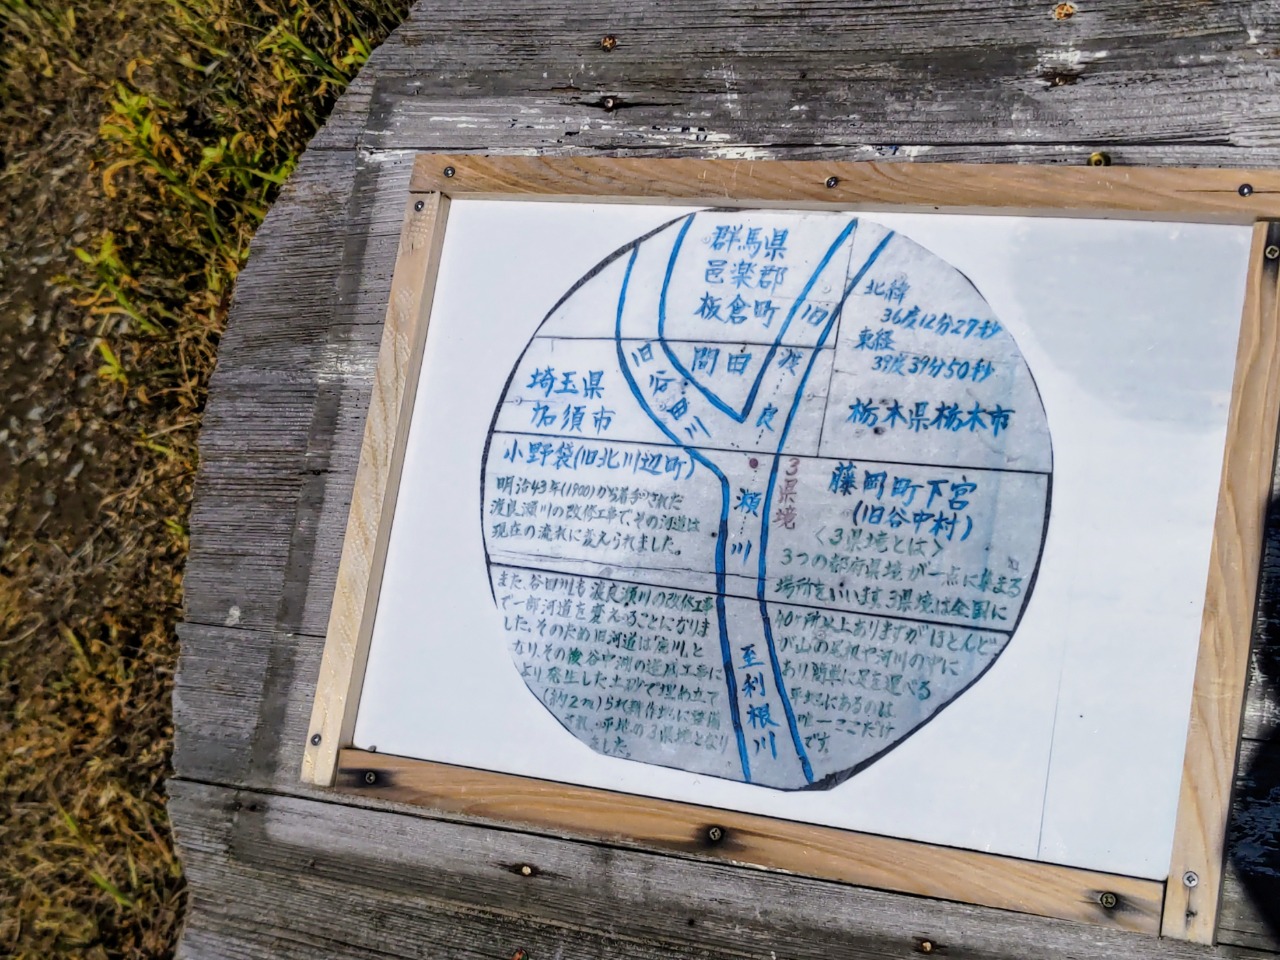 群馬県
邑楽郡
板倉町
北緯
36度12分27秒
東経
39度39分50秒
栃木県栃木市
藤岡町下宮
(旧谷中村)
埼玉県
加須市
小野袋(旧北川辺町)
間田
旧
川
旧
渡
良
瀬
川
3県境
至利根川
明治43年(1900)から着手された
渡良瀬川の改修工事で、その河道は
現在の流れに変えられました。
また、谷田川も渡良瀬川の改修工事
で一部河道を変えることになりま
した。そのため旧河道は廃川と
なり、その後谷中湖の造成工事に
より発生した土砂で埋め立て
(約2m)られ耕作地に整備
され、平地の3県境となり
ました。
〈3県境とは〉
3つの都府県境が一点に集まる
場所をいいます。3県境は全国に
40ヶ所以上ありますがほとんど
が山の尾根や河川の中に
あり簡単に足を運べる
平地にあるのは
唯一ここだけ
です。